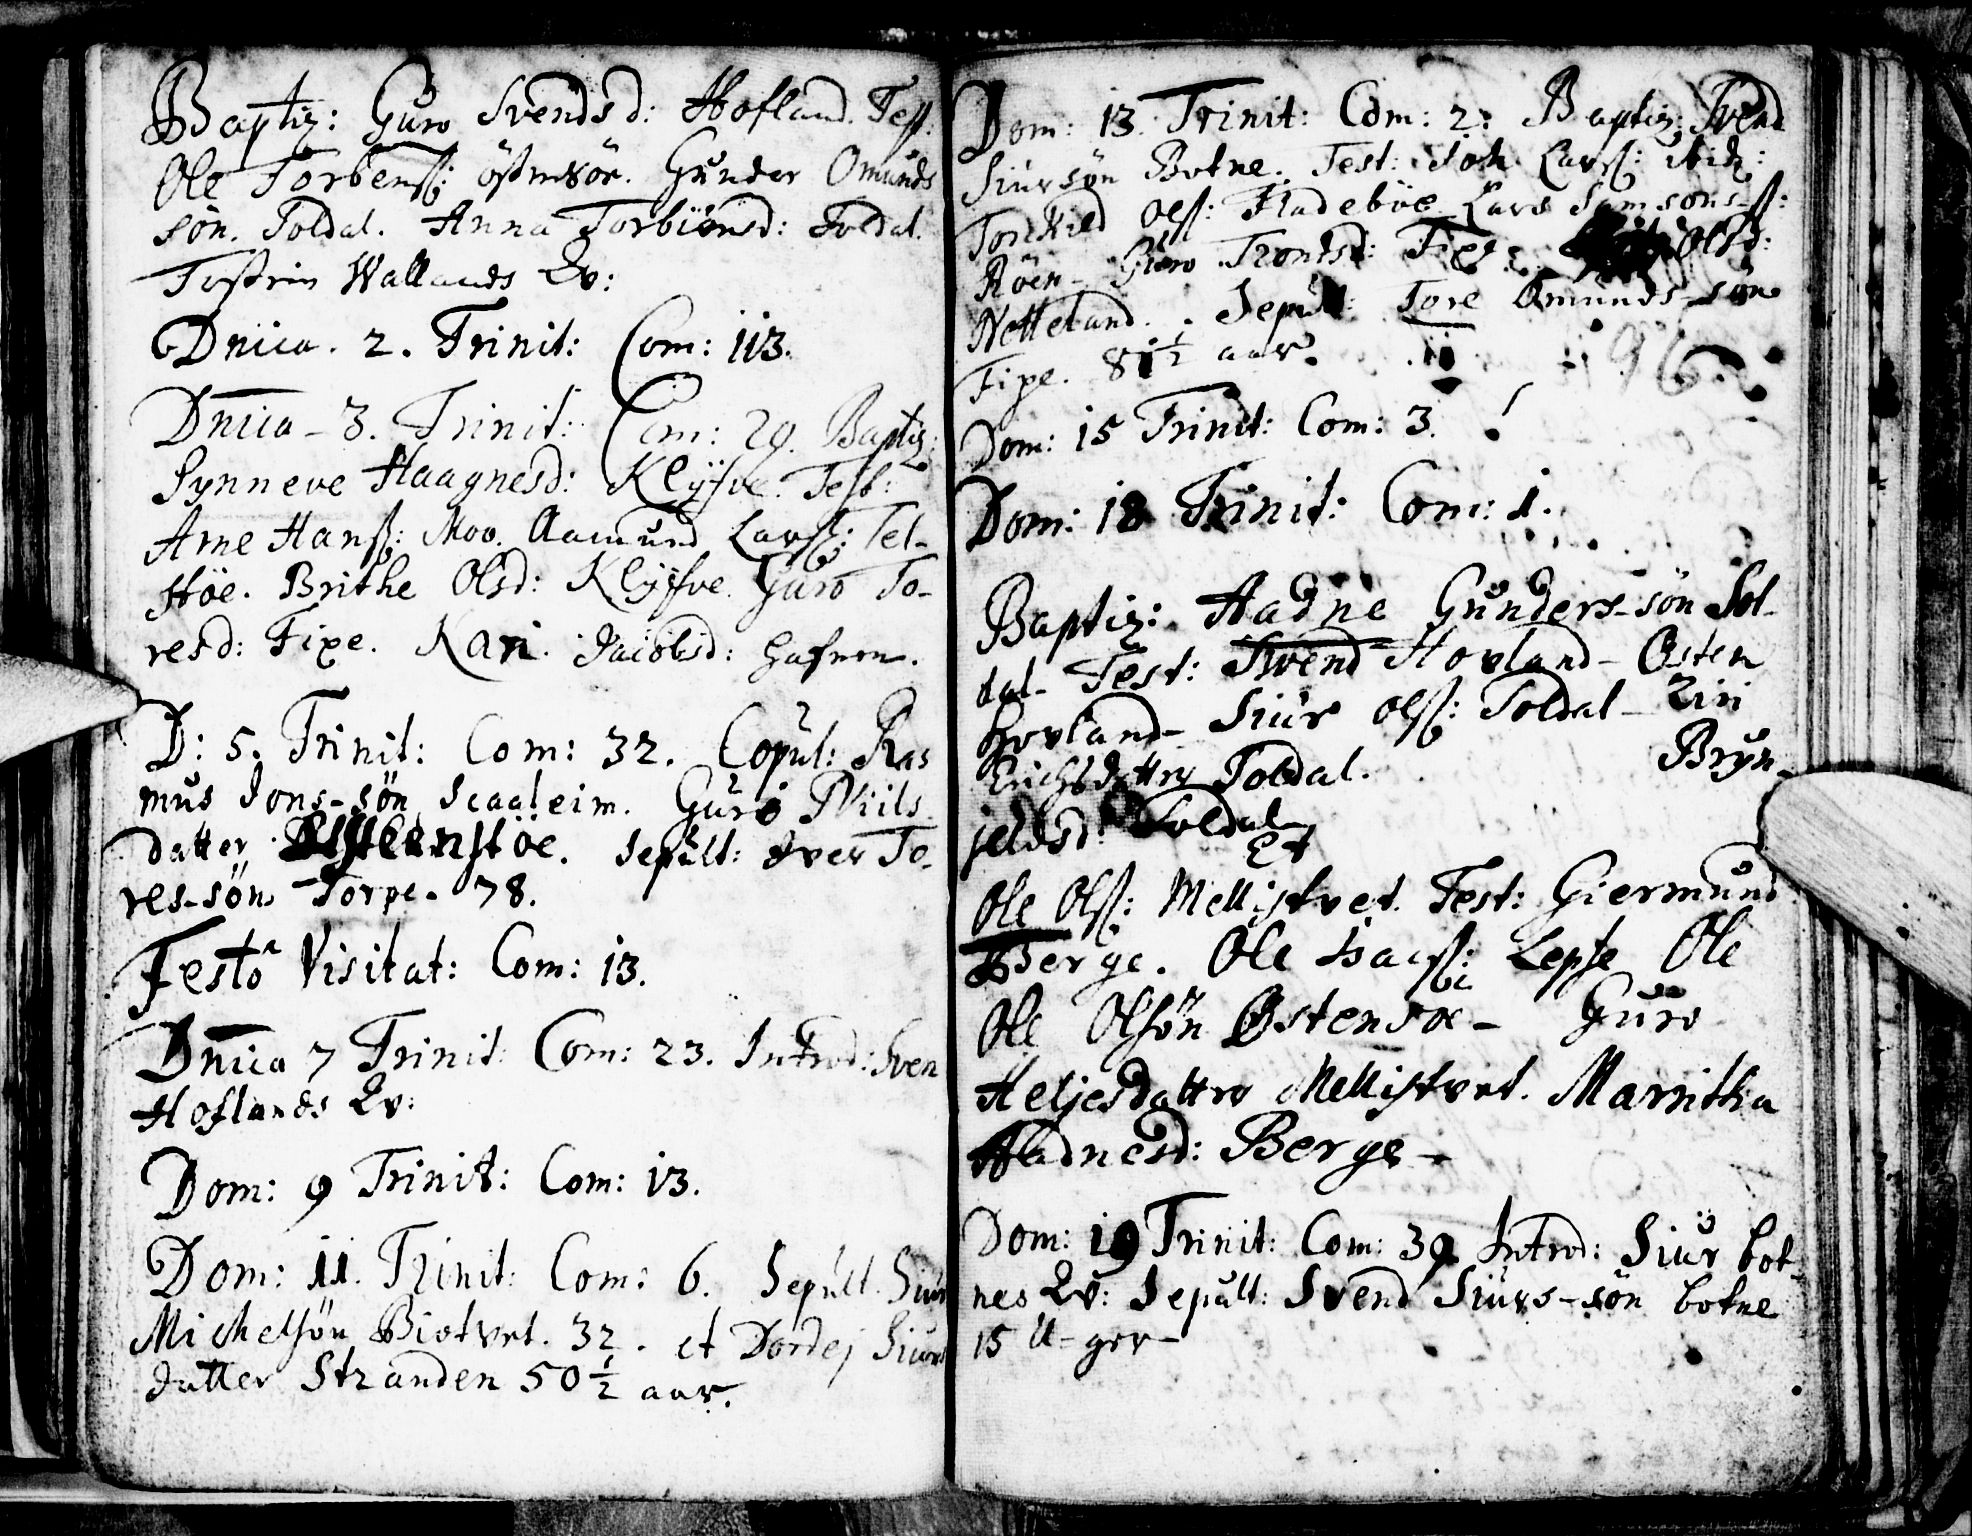 Baptiz: Guro Svendsd: Hofland. Test:
Ole Torbenß: östensöe. Gunder Omunds
sön. Soldal. Anna Torbiörnsd: Soldal.
Wallands Qv:
Dnica. 2. Trinit: Com: 113.
Dnica - 3. Trinit: Com: 29. Baptiz:
Synneve Haagnesd: Klÿfve. Test:
Arne Hanß: Moo. Aamund Larß: Tel-
Höe. Brithe Olsd: Klÿfve. Guro To-
resd: Fixe. Kari. Jacobsd:
D: 5. Trinit: Com: 32. Copul: Ras
mus Jons-sön Scaaleim. Guro Niils
datter. . Sepült: Iver To-
res-sön Torpe. 78.
Festo Visitat: Com: 13.
Dnica 7 Trinit: Com: 23. Introd: Sven
Hoflands Qv:
Dom: 9 Trinit: Com: 13.
Dom: 11. Trinit: Com: 6. Sepult. Siur
Michelsön Biotvet. 32. et Dordej Siurs
datter Stranden 50½ aar.
Dom: 13. Trinit: Com: 2: Baptiz: Svend
Siursön Botne. Test: Joh Larß: ibid:
Torkild Olß: Fladeböe Lars Samsons-ß:
Röen - Guro Trondsd: Fixe. Olsd:
Netteland. Sepult: Tore Omunds-sön
Fixe. 81½ aar.
Dom: 15 Trinit: Com: 3.
Dom: 18 Trinit: Com: 1.
Baptiz: Aadne Gunders-sön Sol-
dal- Test: Svend Hovland - Østen
Hovland - Siur Olß: Soldal - Ziri
Erichsdatter Soldal. Bryn-
jeldsd: Soldal
Et
Ole Olß: Mellistvet. Test: Giermund
Berge. Ole Isacß: Lepse Ole
Ole Olsön Østensöe - Guro
Heljesdatter Mellistvet. Maritha
Aadnesd: Berge -
Dom: 19 Trinit: Com: 39 Introd: Siur bot-
nes Qv: Sepult: Svend Siurs-sön botne
15 U-ger-